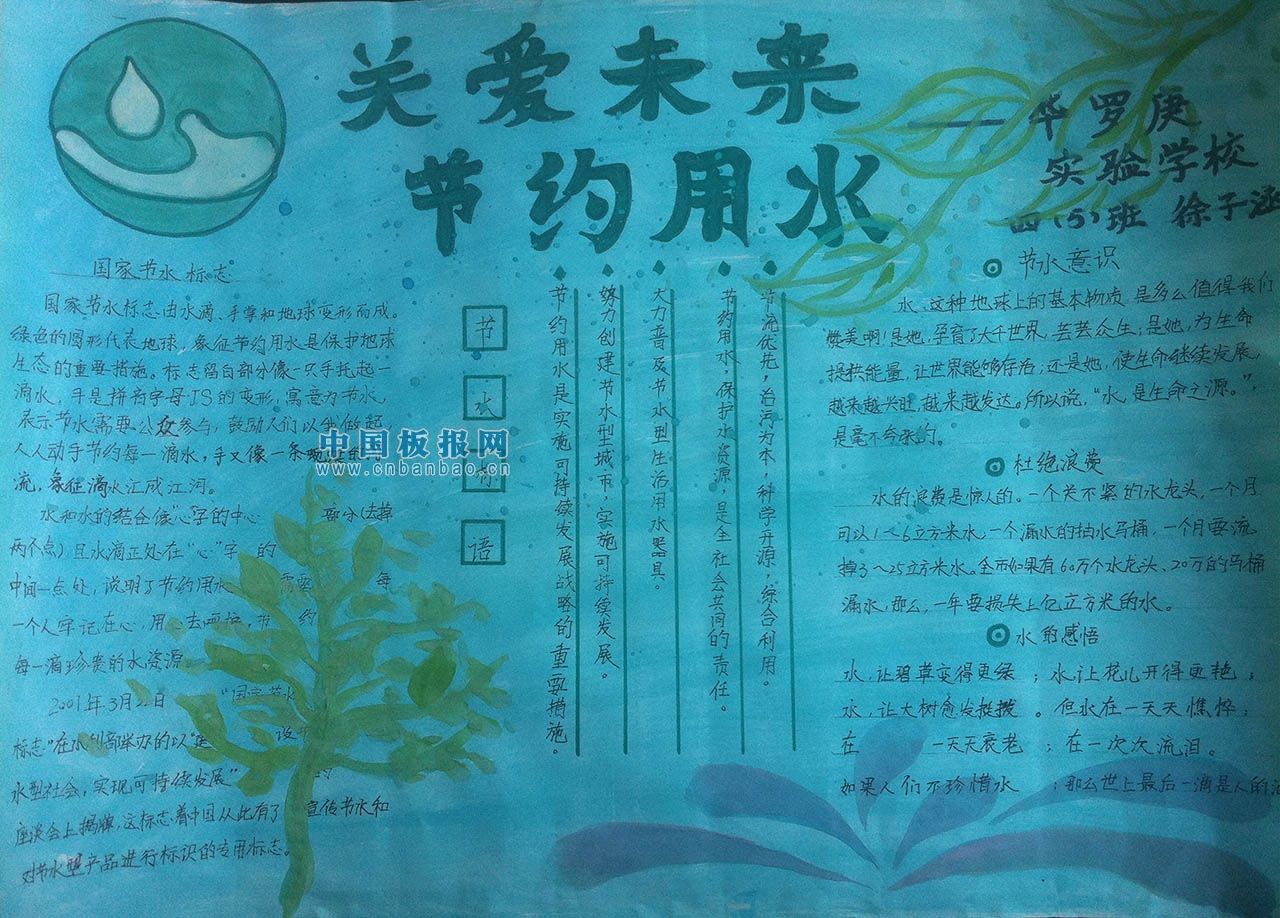 关爱未来
节约用水
——华罗庚
实验学校
四(5)班 徐子涵
国家节水标志
国家节水标志由水滴、手掌和地球变形而成。
绿色的圆形代表地球,象征节约用水是保护地球
生态的重要措施。标志留白部分像一只手托起一
滴水,手是拼音字母JS的变形,寓意为节水,
表示节水需要公众参与,鼓励人们从我做起,
人人动手节约每一滴水,手又像一条蜿蜒的河
流,象征滴水汇成江河。
水和水的结合像“心”字的中心 部分(去掉
两个点)且水滴正处在“心”字 的
中间一点处,说明了节约用水 需要 每
一个人牢记在心,用心去呵护,节 约
每一滴珍贵的水资源。
2001年3月22日 “国家节水
标志”在水利部举办的以“建 设节
水型社会,实现可持续发展” 的
座谈会上揭牌,这标志着中国从此有了 宣传节水和
对节水型产品进行标识的专用标志。
节
水
标
语
节约用水是实施可持续发展战略的重要措施。
努力创建节水型城市,实施可持续发展。
大力普及节水型生活用水器具。
节约用水,保护水资源,是全社会共同的责任。
节流优先,治污为本,科学开源,综合利用。
中国板报网
www.cnbanbao.cn
节水意识
水、这种地球上的基本物质,是多么值得我们
赞美啊!是她,孕育了大千世界,芸芸众生;是她,为生命
提供能量,让世界能够存活;还是她,使生命继续发展,
越来越兴旺,越来越发达。所以说,“水,是生命之源。”,
是毫不夸张的。
杜绝浪费
水的浪费是惊人的。一个关不紧的水龙头,一个月
可以1~6立方米水,一个漏水的抽水马桶,一个月要流
掉3~25立方米水。全市如果有60万个水龙头、20万的马桶
漏水,那么,一年要损失上亿立方米的水。
水的感悟
水,让碧草变得更绿;水,让花儿开得更艳;
水,让大树愈发挺拔。但水在一天天憔悴;
在 一天天衰老;在一次次流泪。
如果人们不珍惜水;那么世上最后一滴是人的